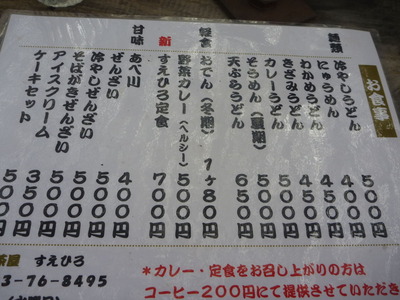 お食事
麺類
冷やしうどん 500円
にゅうめん
わかめうどん
きざみうどん
カレーうどん
そうめん(夏期)
天ぷらうどん 650円
軽食
おでん(冬期) 1ヶ80円
野菜カレー(ヘルシー) 500円
新
すえひろ定食 700円
甘味
あべ川 400円
ぜんざい 500円
冷やしぜんざい 500円
そばがきぜんざい
アイスクリーム
ケーキセット
茶屋 すえひろ
3-76-8495
*カレー・定食をお召し上がりの方は
コーヒー200円にて提供させていただき